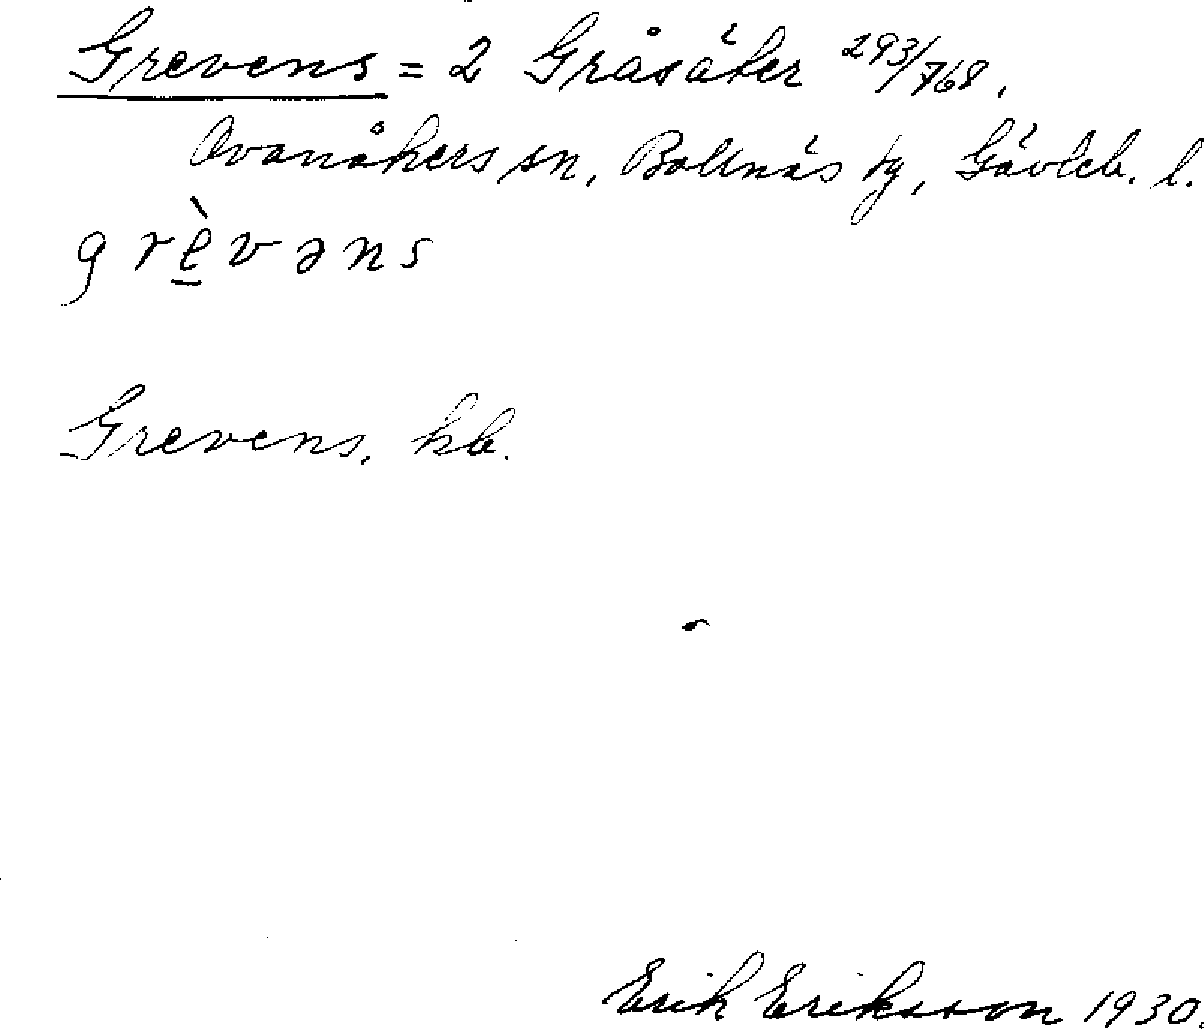 Grevens = 2 Gråsäter 293/768.
Ovanåkers sn, Bollnäs tg, Gävleb. l.
grèvəns
Grevens, kb.
Erik Eriksson 1930.